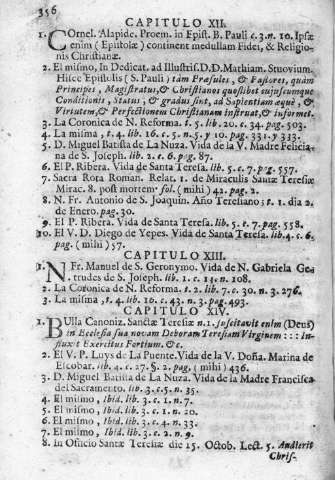 356
CAPITULO XII.
1. Cornel. Alapide. Proem. in Epist. B. Pauli c. 3. n. 10. Ipsæ
enim (Epistolæ) continent medullam Fidei, & Religio-
nis Christianæ.
2. El mismo, In Dedicat. ad Illustris. D.D. Mathiam. Stuovium.
Hisce Epistolis (S. Pauli) tam Præsules, & Pastores, quam
Principes, Magistratus, & Christianos quoslibet cujuscumque
Conditionis, Status, & gradus sint, ad Sapientiam æquè, &
Virtutem, & Perfectionem Christianam instruat, & informet.
3. La Coronica de N. Reforma. t. 5. lib. 20. c. 34. pag. 503.
4. La misma, t. 4. lib. 16. c. 5. n. 5. y 10. pag. 331. y 333.
5. D. Miguel Batista de La Nuza. Vida de la V. Madre Felicia-
na de S. Joseph. lib. 2. c. 6. pag. 87.
6. El P. Ribera. Vida de Santa Teresa. lib. 5. c. 7. pag. 557.
7. Sacra Rota Roman. Relat. 1. de Miraculis Santæ Teresiæ
Mirac. 8. post mortem fol. (mihi) 42. pag. 2.
8. N. Fr. Antonio de S. Joaquin. Año Teresiano; t. 1. dia 2.
de Enero. pag. 30.
9. El P. Ribera. Vida de Santa Teresa. lib. 5. c. 7. pag. 558.
10. El V. D. Diego de Yepes. Vida de Santa Teresa. lib. 4. c. 6.
pag. (mihi) 57.
CAPITULO XIII.
1. N Fr. Manuel de S. Geronymo. Vida de N. Gabriela Ge-
trudes de S. Joseph. lib. 1. c. 13. n. 108.
2. La Coronica de N. Reforma. t. 2. lib. 7. c. 30. n. 3. 276.
3. La misma, t. 4. lib. 16. c. 43. n. 3. pag. 493.
CAPITULO XIV.
1. Bulla Canoniz. Sanctæ Teresiæ n. 1. suscitavit enim (Deus)
in Ecclesia sua novam Deboram Teresiam Virginem : : : in-
fluxit Exercitus Fortium, &c.
2. El V. P. Luys de La Puente. Vida de la V. Doña. Marina de
Escobar. lib. 4. c. 27. §. 2. pag. (mihi) 436.
3. D. Miguel Batista de La Nuza. Vida de la Madre Francisca
del Sacramento. lib. 3. c. 5. n. 35.
4. El mismo, Ibid. lib. 3. c. 1. n. 7.
5. El mismo, Ibid. lib. 3. c. 1. n. 20.
6. El mismo, Ibid. lib. 3. c. 3. n. 33.
7. El mismo, Ibid. lib. 3. c. 2. n. 9.
8. In Officio Santæ Teresiæ die 15. Octob. Lect. 5. Audierit
Chris-